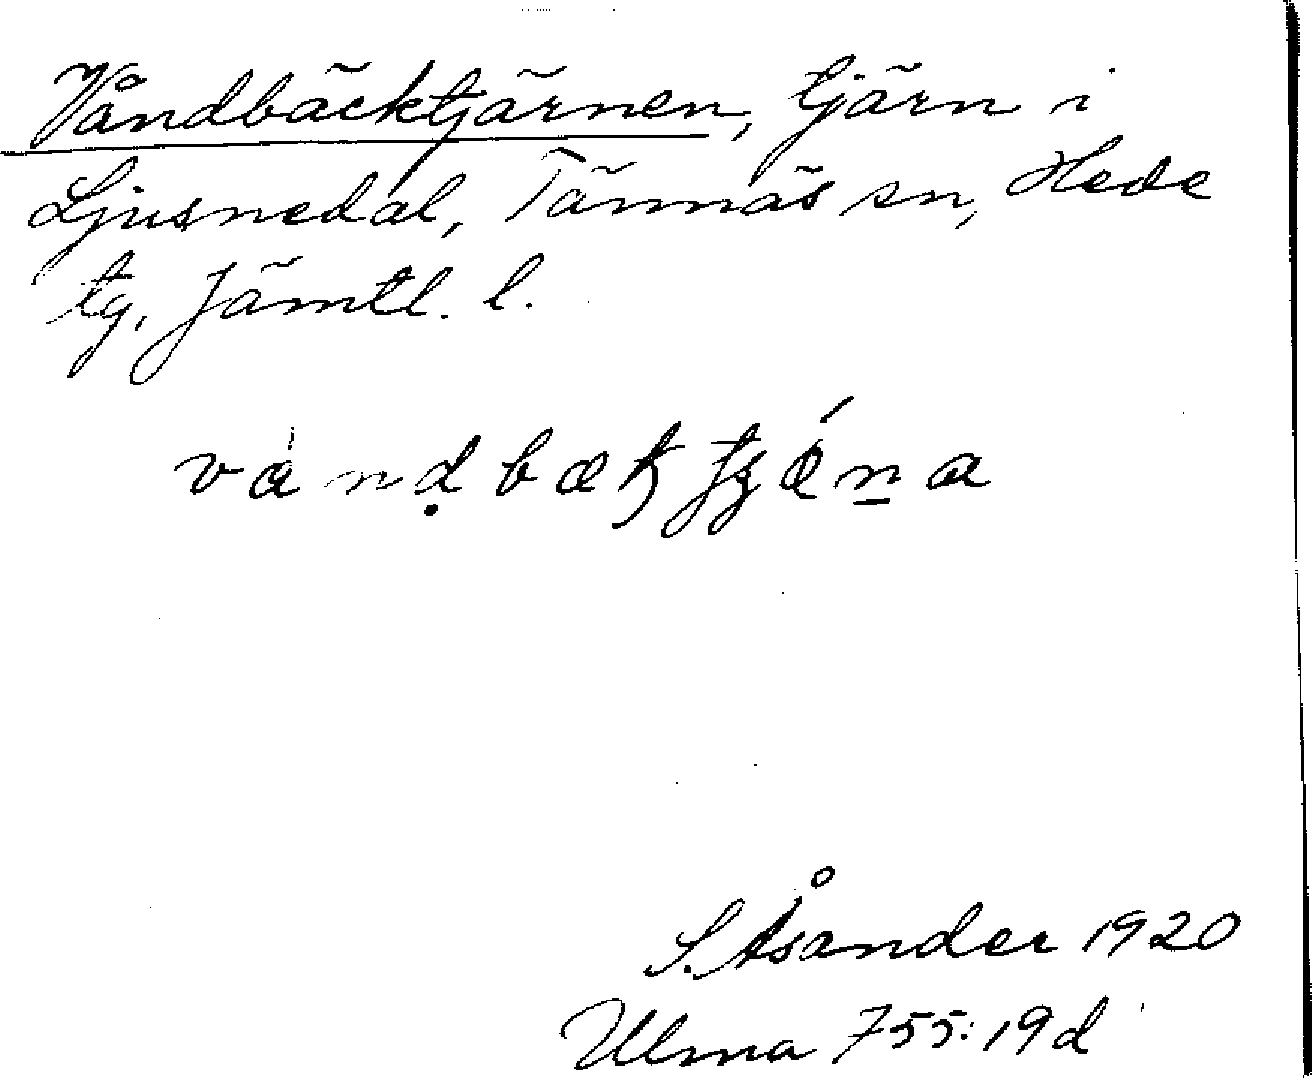 Våndbäcktjärnen, tjärn i
Ljusnedal, Tännäs sn, Hede
tg, Jämtl. l.
S. Åsander 1920
Ulma 755:19d